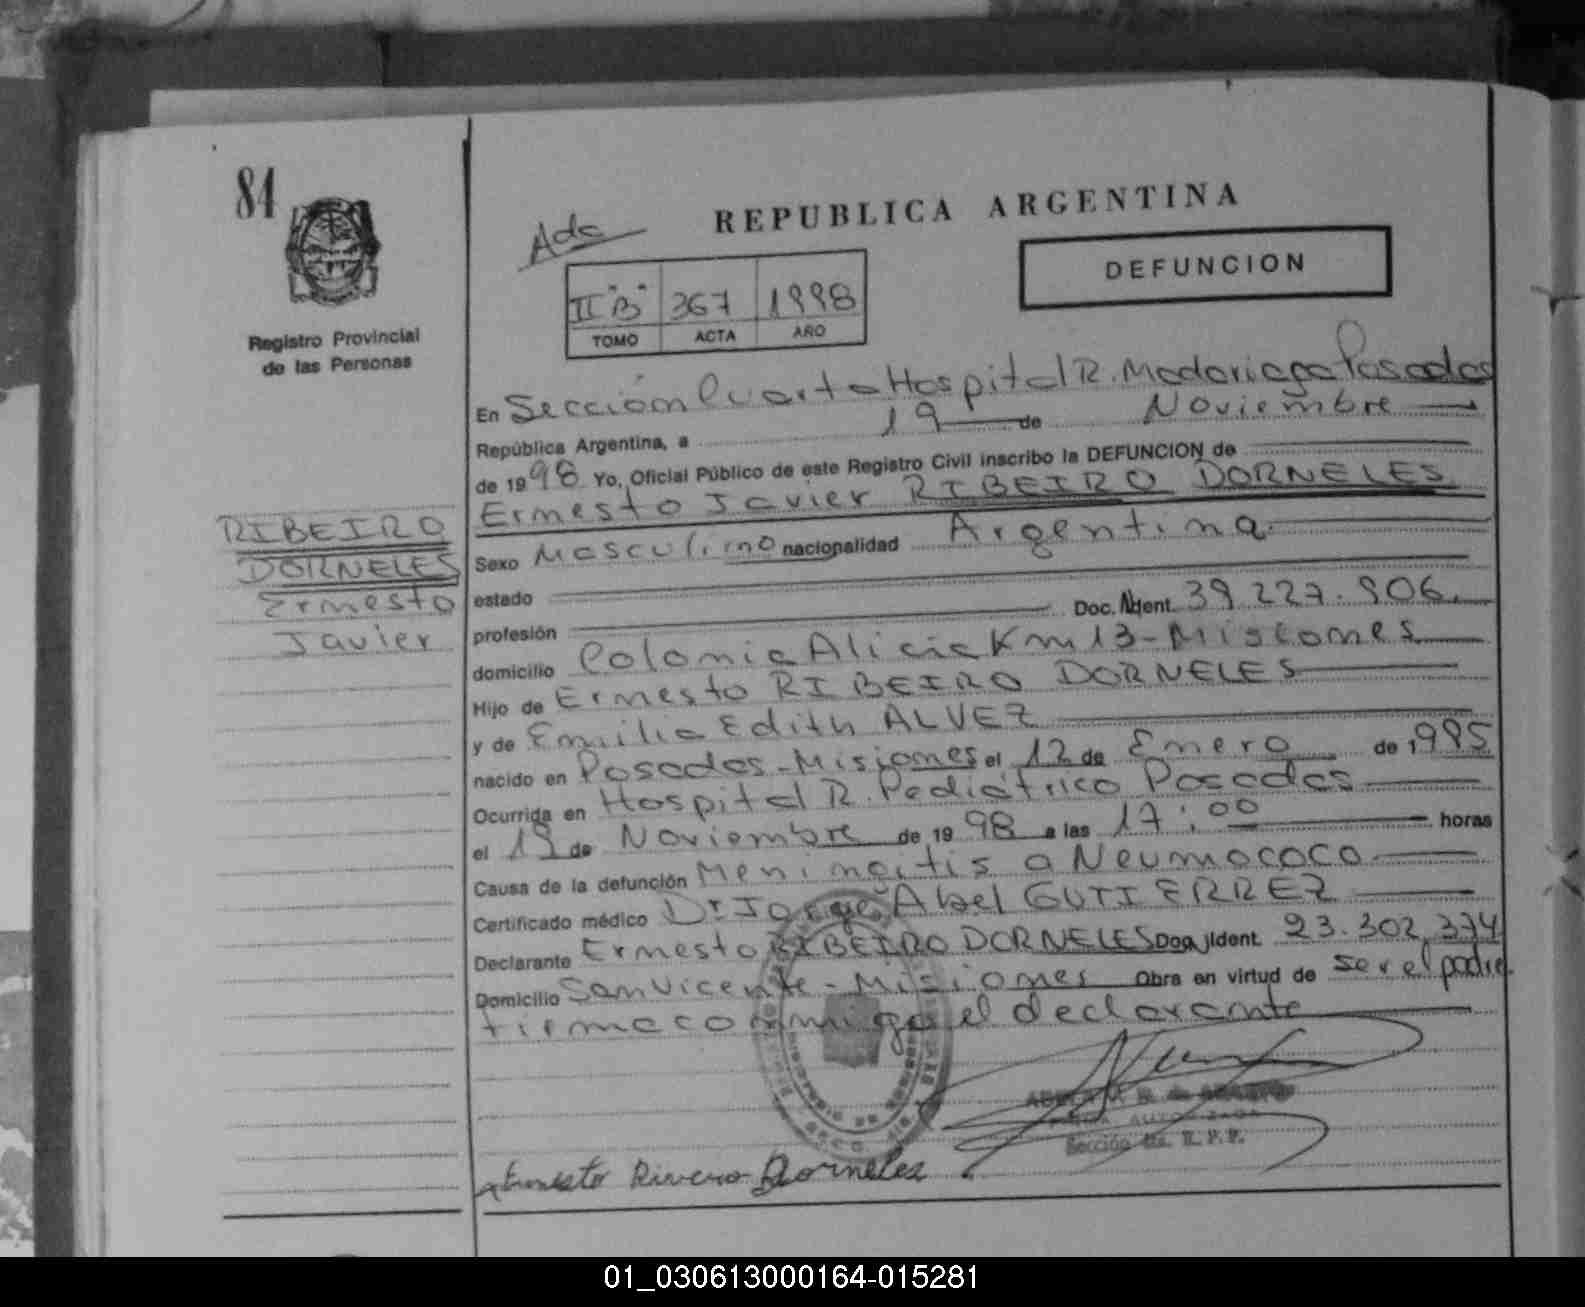 84
Registro Provincial
de las Personas
RIBEIRO
DORNELES
Ernesto
Javier
REPUBLICA ARGENTINA
DEFUNCION
II "B" 367 1998
TOMO ACTA AÑO
En Sección Cuarta Hospital R. Madariaga Posadas
República Argentina, a 19 de Noviembre
de 1998 Yo, Oficial Público de este Registro Civil inscribo la DEFUNCION de
Ernesto Javier RIBEIRO DORNELES
Sexo Masculino nacionalidad Argentina
estado
profesión Doc. Ident. 39.227.906.
domicilio Colonia Alicia Km 13 - Misiones
Hijo de Ernesto RIBEIRO DORNELES
y de Emilia Edith ALVEZ
nacido en Posadas - Misiones el 12 de Enero de 1995
Ocurrida en Hospital R. Pediátrico Posadas
el 19 de Noviembre de 1998 a las 17:00 horas
Causa de la defunción Meningitis a Neumococo
Certificado médico Dr Jorge Abel GUTIERREZ
Declarante Ernesto RIBEIRO DORNELES Doc. Ident. 23.302.374
Domicilio San Vicente - Misiones Obra en virtud de ser el padre
firma conmigo el declarante
Sección 4ta. R. P. P.
Ernesto Rivero Dorneles
01_030613000164-015281